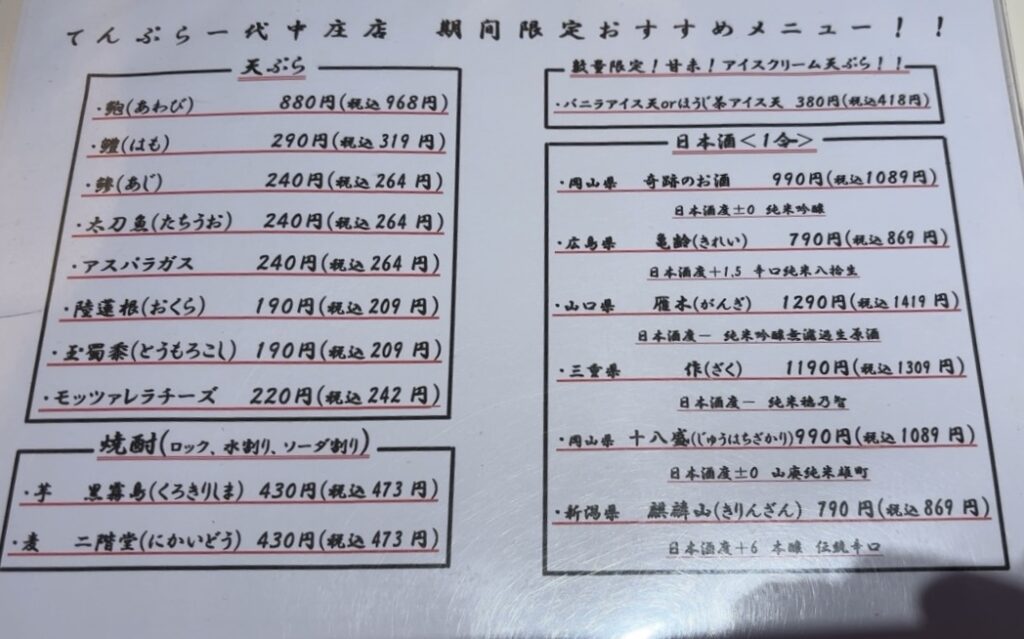 てんぷら一代中庄店　期間限定おすすめメニュー！！
天ぷら
・鮑(あわび)　880円(税込968円)
・鱧(はも)　290円(税込319円)
・鯵(あじ)　240円(税込264円)
・太刀魚(たちうお)　240円(税込264円)
・アスパラガス　240円(税込264円)
・陸蓮根(おくら)　190円(税込209円)
・玉蜀黍(とうもろこし)　190円(税込209円)
・モッツァレラチーズ　220円(税込242円)
焼酎(ロック、水割り、ソーダ割り)
・芋　黒霧島(くろきりしま)　430円(税込473円)
・麦　二階堂(にかいどう)　430円(税込473円)
数量限定！甘未！アイスクリーム天ぷら！！
・バニラアイス天orほうじ茶アイス天　380円(税込418円)
日本酒＜1合＞
・岡山県　奇跡のお酒　990円(税込1089円)
日本酒度±0　純米吟醸
・広島県　亀齢(きれい)　790円(税込869円)
日本酒度＋1.5　辛口純米八拾生
・山口県　雁木(がんぎ)　1290円(税込1419円)
日本酒度－　純米吟醸無濾過生原酒
・三重県　作(ざく)　1190円(税込1309円)
日本酒度－　純米穂乃智
・岡山県　十八盛(じゅうはちざかり)990円(税込1089円)
日本酒度±0　山廃純米雄町
・新潟県　麒麟山(きりんざん)　790円(税込869円)
日本酒度＋6　本醸　伝統辛口